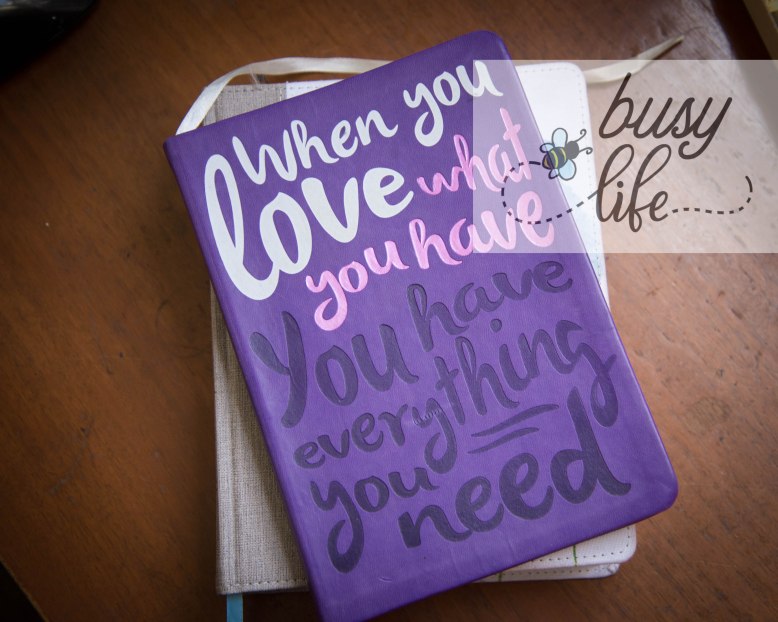 When you
love what
you have
You have
everything
you
need
busy
life